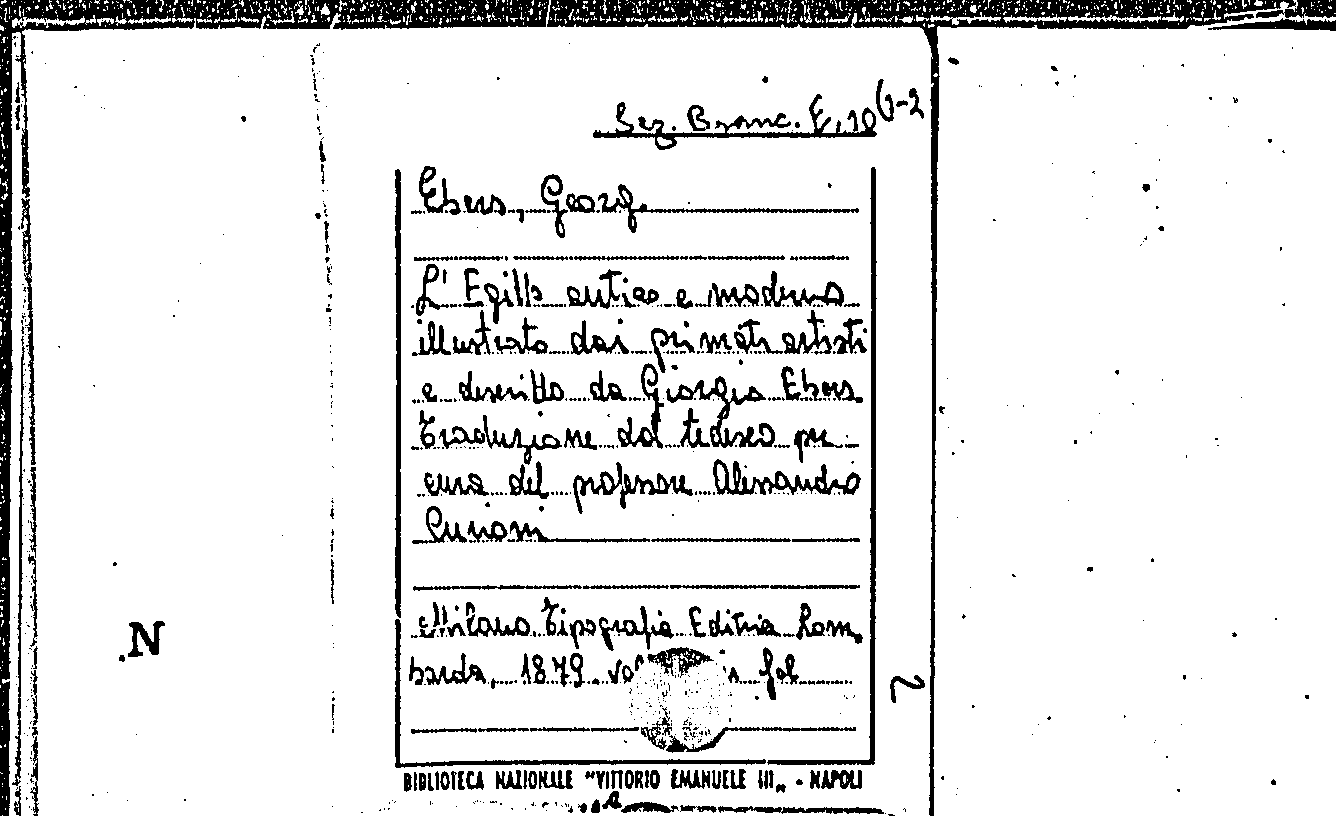 Sez. Branc. E, 10 (1-2
Ebers, Georg.
L' Egitto antico e moderno
illustrato dai primati artisti
e descritto da Giorgio Ebers.
Traduzione dal tedesco per
cura del professore Alessandro
Curioni
Milano. Tipografia Editrice Lom-
barda, 1879. vol in fol
N
2
BIBLIOTECA NAZIONALE "VITTORIO EMANUELE III„ - NAPOLI